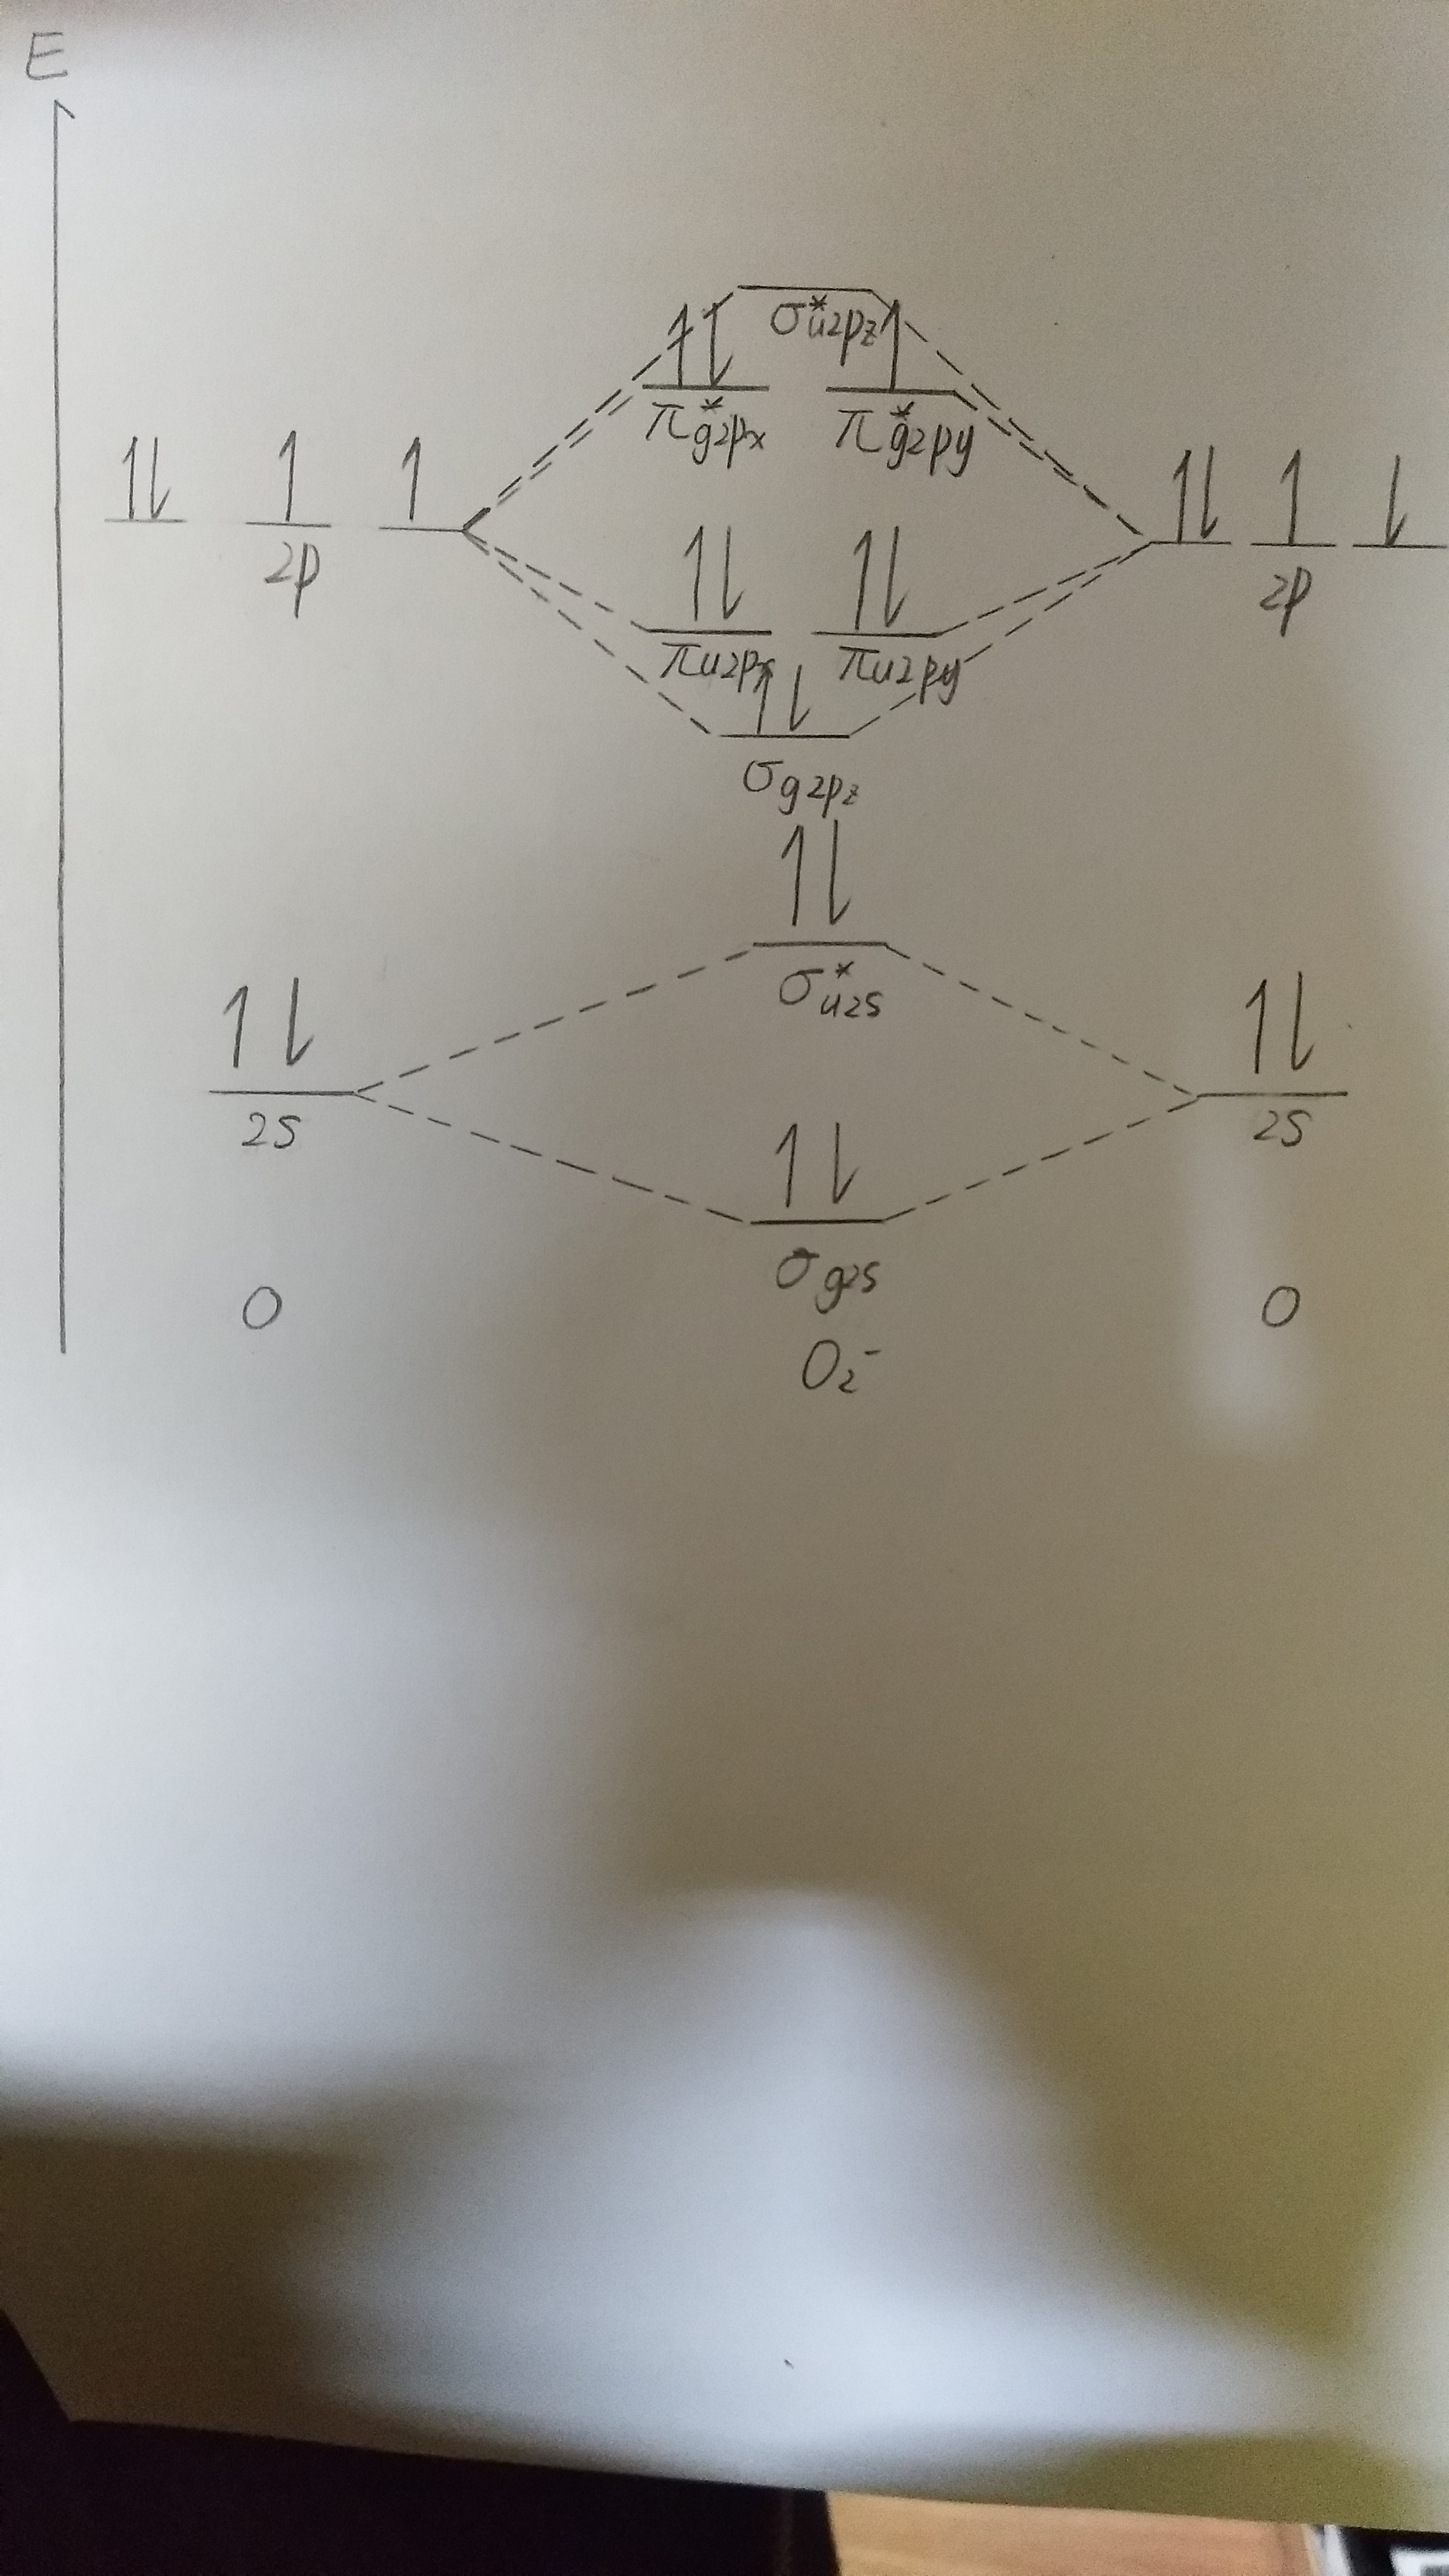 E
σ*u2pz
π*g2px π*g2py
2p 2p
πu2px πu2py
σg2pz
σ*u2s
2s 2s
σg2s
O O
O₂⁻